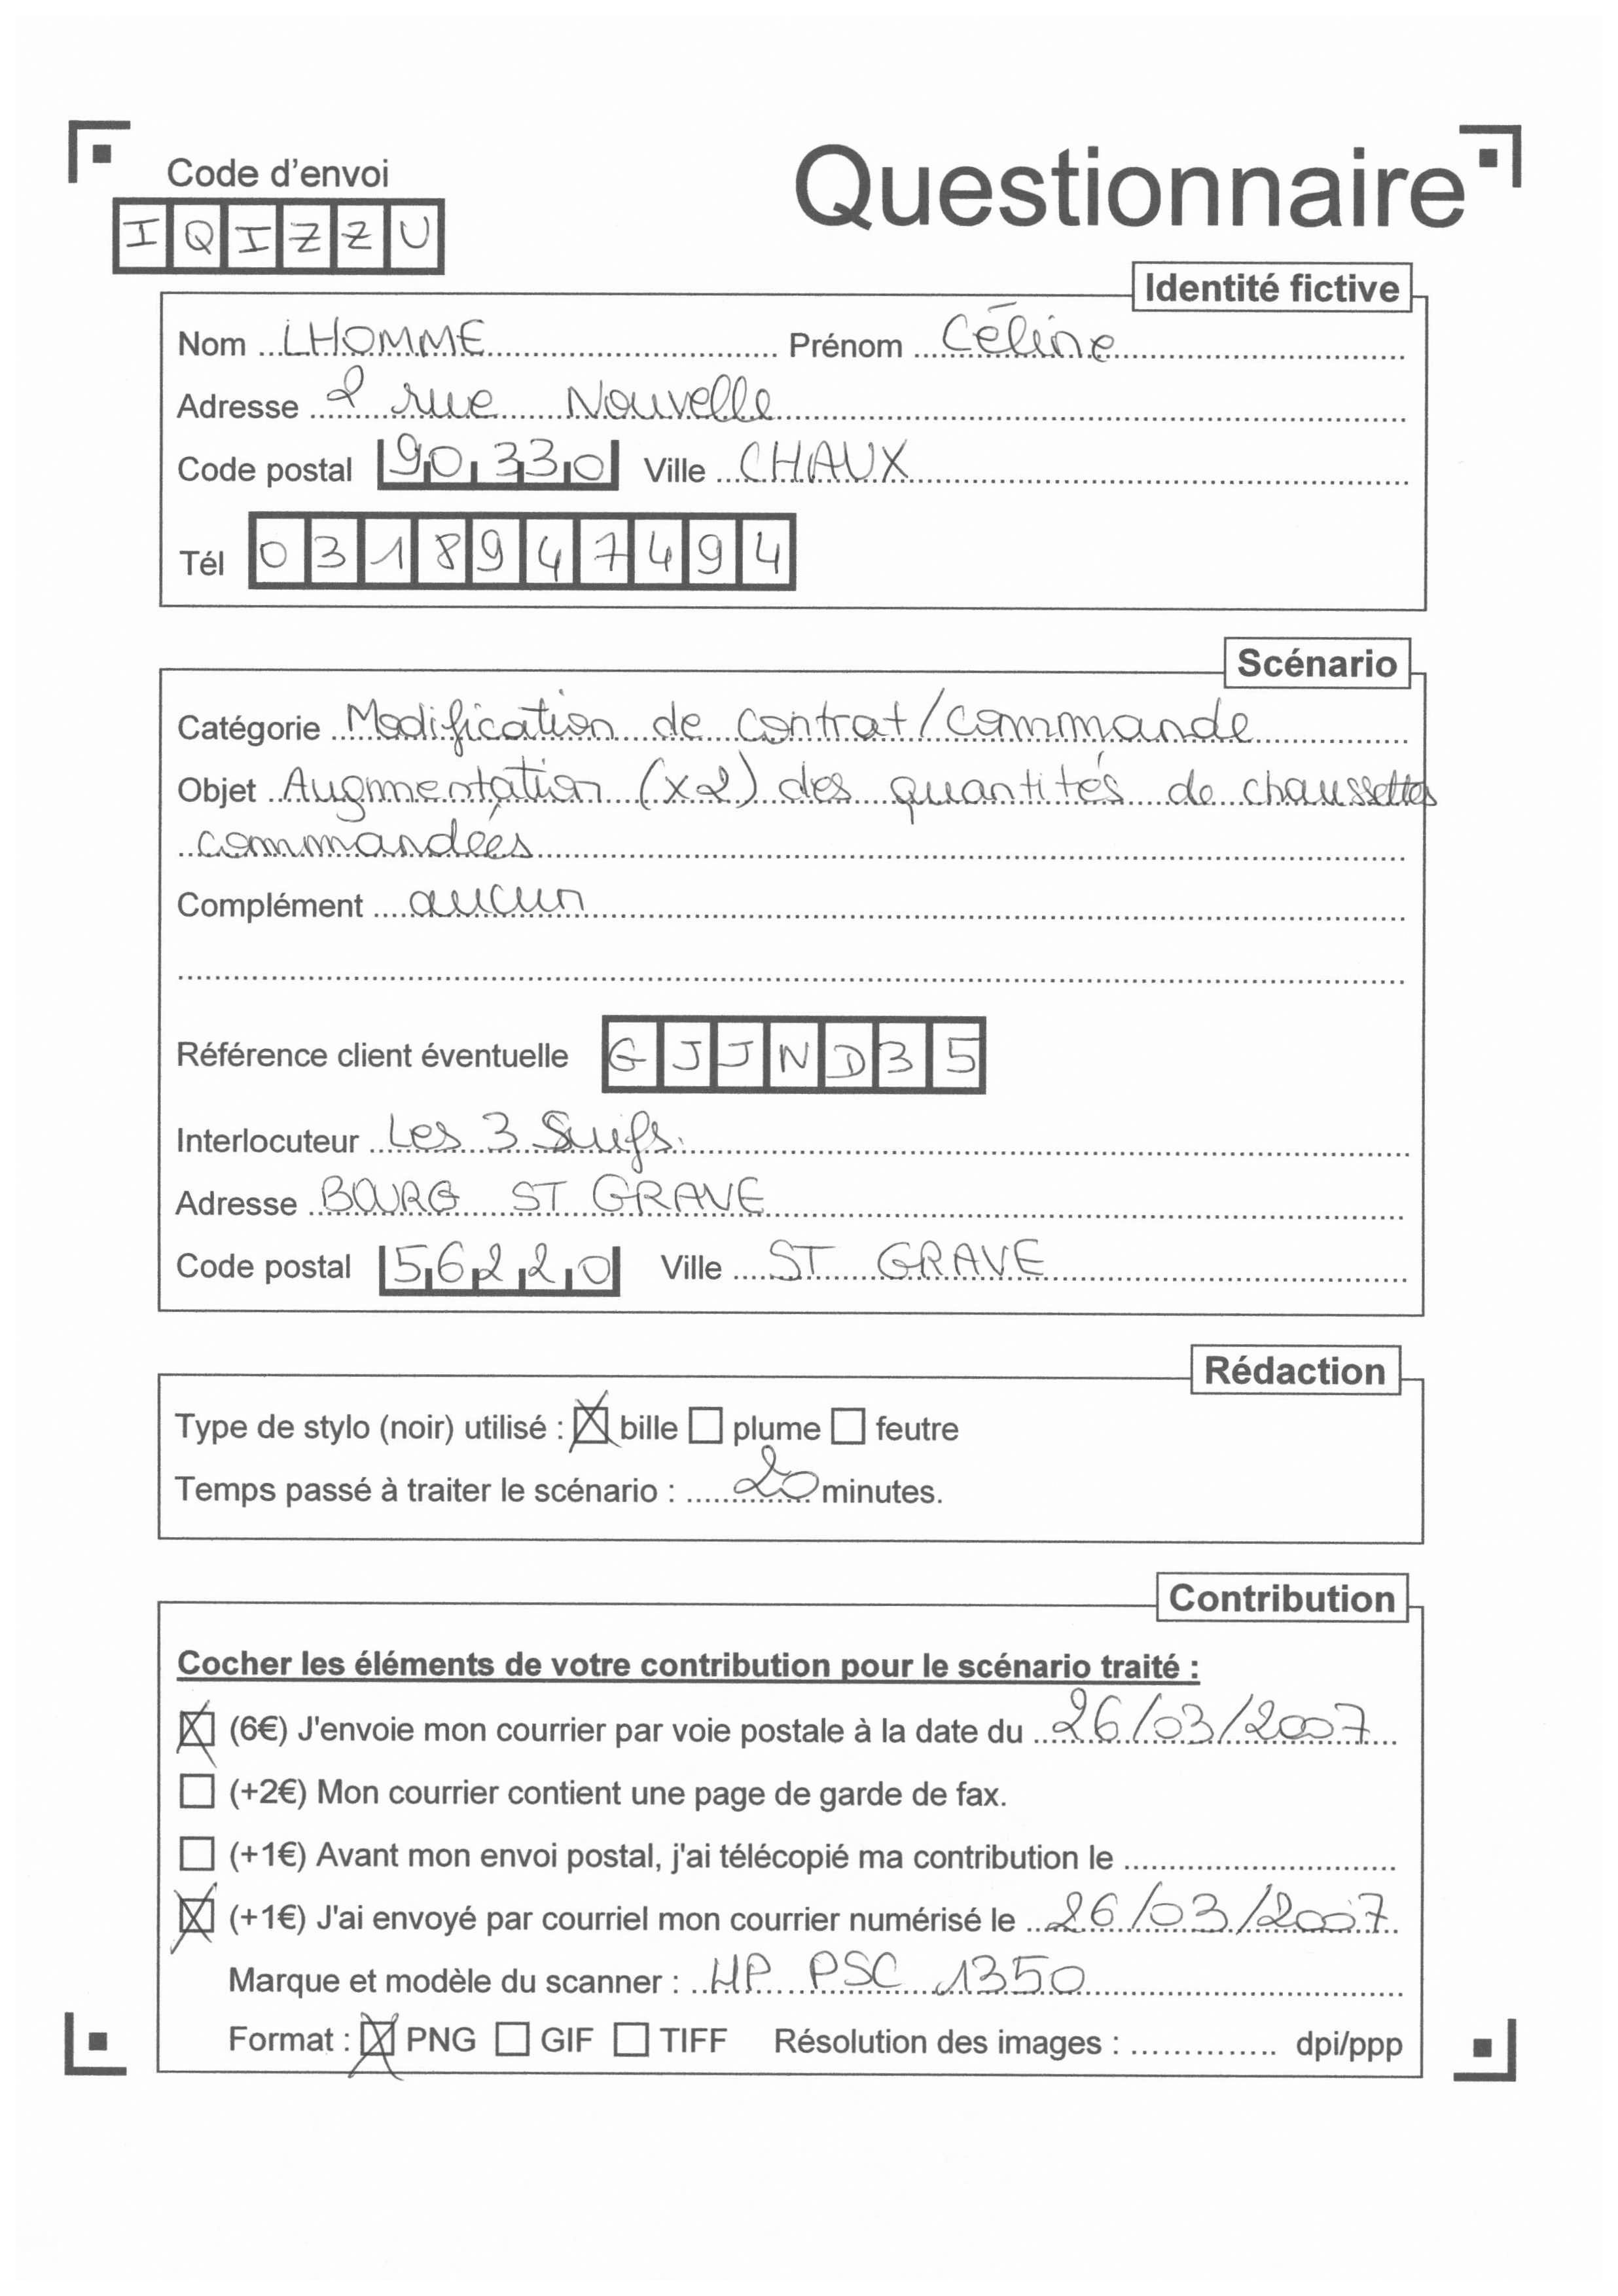 Code d'envoi
Questionnaire
IQIZZU
Identité fictive
Nom LHOMME Prénom Céline
Adresse 2 rue Nouvelle
Code postal 90330 Ville CHAUX
Tél 0318947494
Scénario
Catégorie Modification de contrat/commande
Objet Augmentation (x2) des quantités de chaussettes
commandées
Complément aucun
Référence client éventuelle GJJND35
Interlocuteur Les 3 Suifs.
Adresse BOURG ST GRAVE
Code postal 56220 Ville ST GRAVE
Rédaction
Type de stylo (noir) utilisé : ☒ bille ☐ plume ☐ feutre
Temps passé à traiter le scénario : 20 minutes.
Contribution
Cocher les éléments de votre contribution pour le scénario traité :
☒ (6€) J'envoie mon courrier par voie postale à la date du 26/03/2007
☐ (+2€) Mon courrier contient une page de garde de fax.
☐ (+1€) Avant mon envoi postal, j'ai télécopié ma contribution le
☒ (+1€) J'ai envoyé par courriel mon courrier numérisé le 26/03/2007
Marque et modèle du scanner : HP PSC 1350
Format : ☒ PNG ☐ GIF ☐ TIFF Résolution des images : .............. dpi/ppp